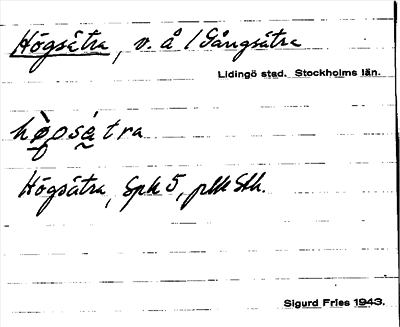 Högsätra, v. å / Gångsätra
Lidingö stad. Stockholms län.
hø̀gsä́tra
Högsätra, Spk 5, plk Sth.
Sigurd Fries 1943.